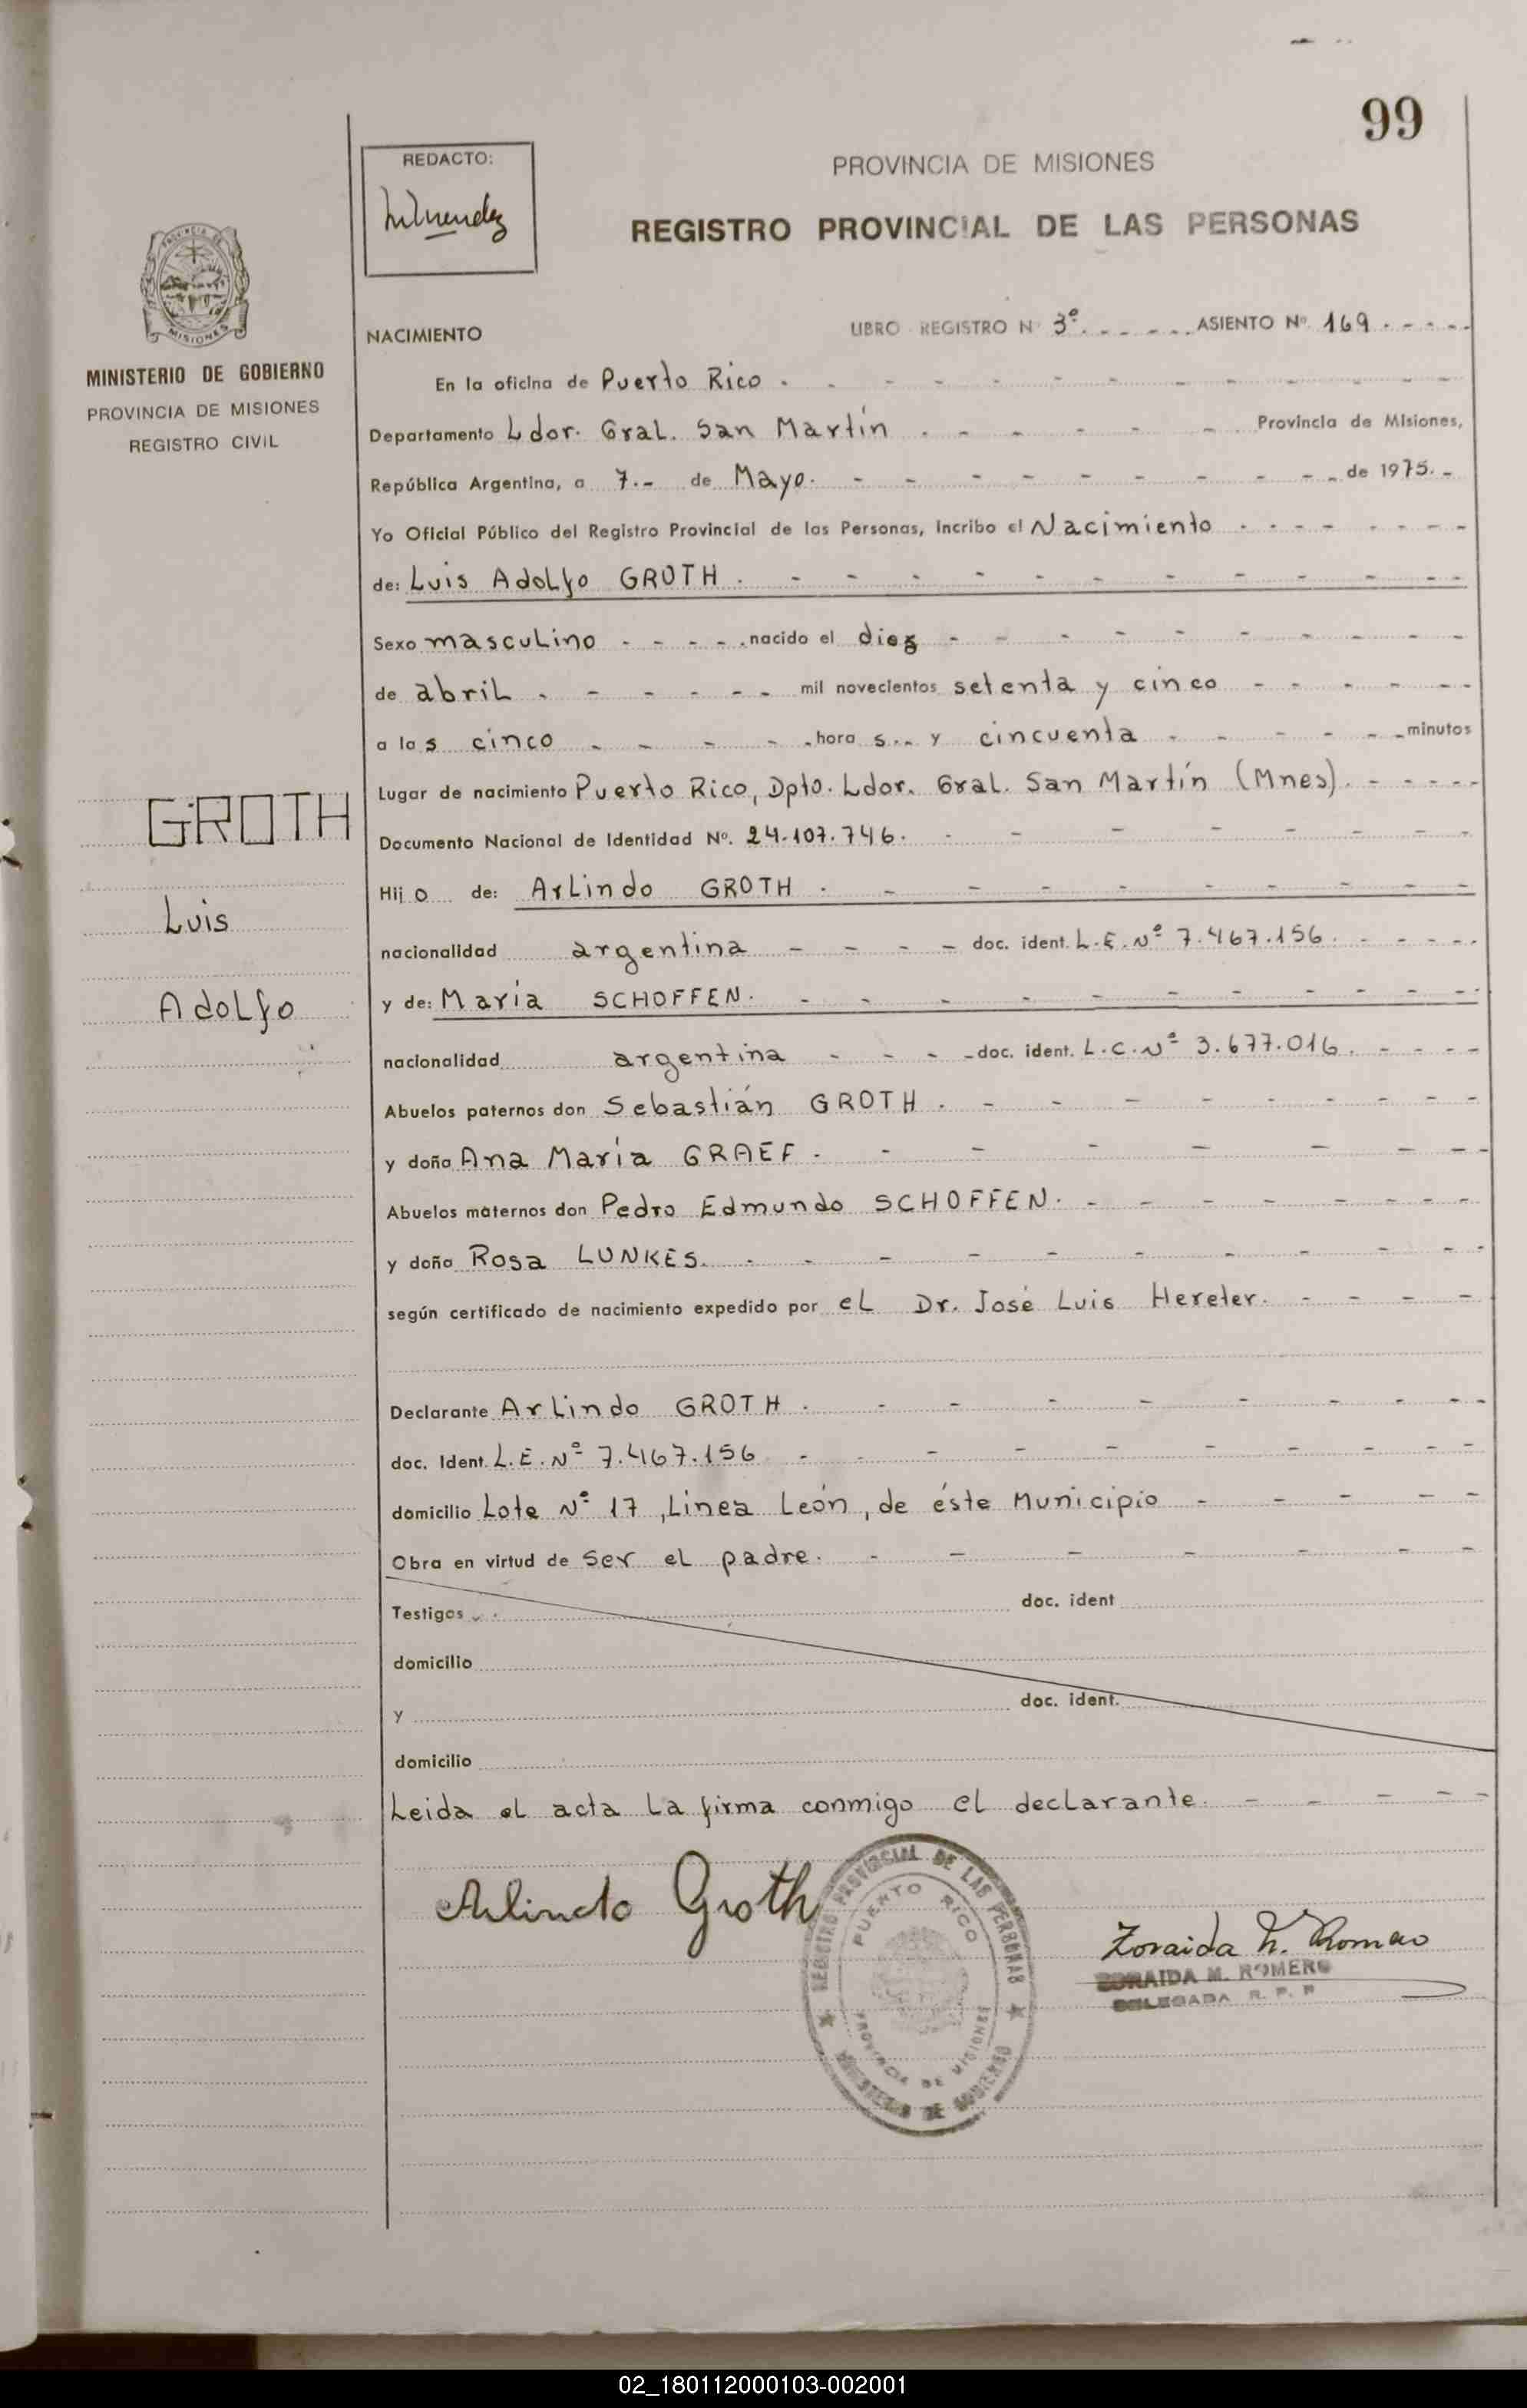 99
REDACTO:
PROVINCIA DE MISIONES
REGISTRO PROVINCIAL DE LAS PERSONAS
PROVINCIA DE
MISIONES
MINISTERIO DE GOBIERNO
PROVINCIA DE MISIONES
REGISTRO CIVIL
NACIMIENTO
LIBRO REGISTRO Nº 3º. ASIENTO Nº. 169
En la oficina de Puerto Rico
Departamento Ldor. Gral. San Martín Provincia de Misiones,
República Argentina, a 7.- de Mayo. de 1975.
Yo Oficial Público del Registro Provincial de las Personas, Incribo el Nacimiento
de: Luis Adolfo GROTH
Sexo masculino nacido el diez
de abril mil novecientos setenta y cinco
a las cinco horas y cincuenta minutos
Lugar de nacimiento Puerto Rico, Dpto. Ldor. Gral. San Martín (Mnes).
Documento Nacional de Identidad Nº. 24.107.746.
Hijo de: Arlindo GROTH
nacionalidad argentina doc. ident. L.E. Nº 7.467.156.
y de: María SCHOFFEN.
nacionalidad argentina doc. ident. L.C. Nº 3.677.016.
Abuelos paternos don Sebastián GROTH
y doña Ana María GRAEF
Abuelos maternos don Pedro Edmundo SCHOFFEN.
y doña Rosa LUNKES.
según certificado de nacimiento expedido por el Dr. José Luis Hereter.
Declarante Arlindo GROTH
doc. Ident. L.E. Nº 7.467.156
domicilio Lote Nº 17, Linea León, de éste Municipio
Obra en virtud de ser el padre.
Testigos doc. ident
domicilio
y doc. ident.
domicilio
Leida el acta la firma conmigo el declarante.
GROTH
Luis
Adolfo
Arlindo Groth
REGISTRO PROVINCIAL DE LAS PERSONAS
PUERTO RICO
PROVINCIA DE MISIONES
MINISTERIO DE GOBIERNO
Zoraida M. Romero
ZORAIDA M. ROMERO
DELEGADA R. P. P
02_180112000103-002001